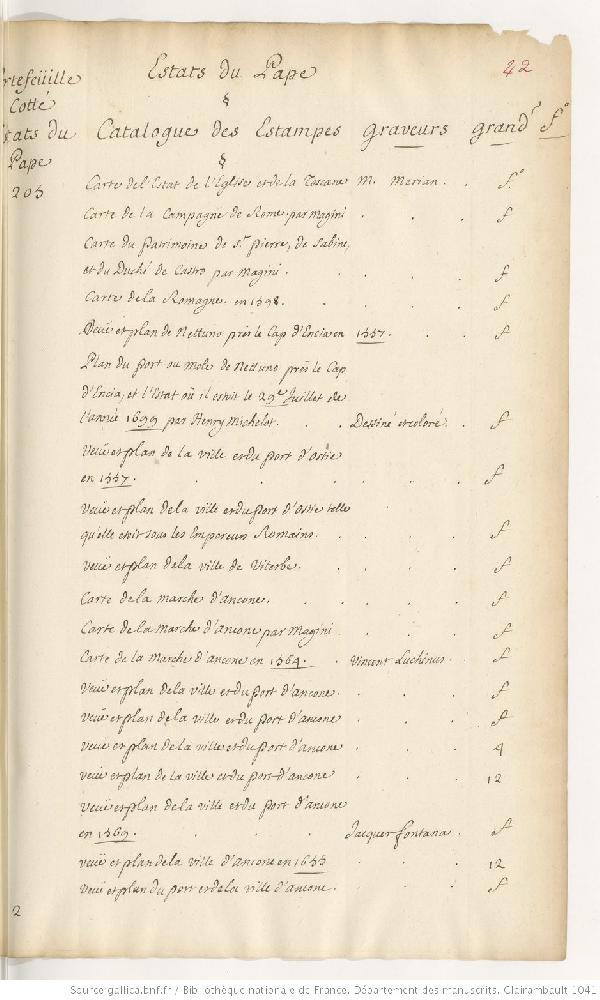 Estats du Pape
42
rtefeüille
Cotté
tats du
Pape
203
§
Catalogue des Estampes graveurs grandr fo
§
Carte de l'Estat de l'Eglise et de la Toscane M. Merian. . fo
Carte de la Campagne de Rome par Magini . . . f
Carte du patrimoine de St pierre, de Sabine,
et du Duché de Castro par Magini . . . . f
Carte de la Romagne. en 1598. . . . f
Veüe et plan de Nettuno près le Cap d'Encia en 1557. . . f
Plan du port ou mole de Nettuno près le Cap
d'Encia, et l'Estat où il estoit le 29e Juillet de
l'année 1699 par Henry Michelot. . . Dessiné et coloré. . f
Veüe et plan de la ville et du port d'ostie
en 1557. . . . . . f
Veüe et plan de la ville et du port d'ostie telle
qu'elle estoit sous les Empereurs Romains. . . . f
Veüe et plan de la ville de Viterbe. . . . f
Carte de la marche d'ancone. . . . . f
Carte de la Marche d'ancone par Magini . . . f
Carte de la Marche d'ancone en 1564. . Vincent Luchinus. . f
Veüe et plan de la ville et du port d'ancone . . . f
Veüe et plan de la ville et du port d'ancone . . . f
Veüe et plan de la ville et du port d'ancone . . . 4
Veüe et plan de la ville et du port d'ancone . . . 12
Veüe et plan de la ville et du port d'ancone
en 1569. . . Jacques fontana. . f
Veüe et plan de la ville d'ancone en 1655 . . . 12
Veüe et plan du port et de la ville d'ancone. . . . f
2
Source gallica.bnf.fr / Bibliothèque nationale de France. Département des manuscrits. Clairambault 1041